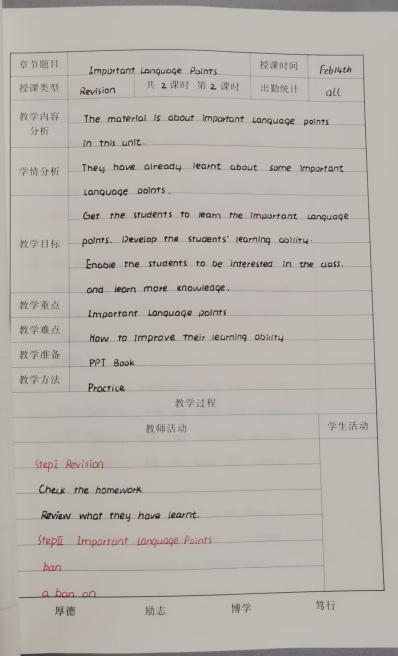 章节题目 Important Language Points 授课时间 Feb 14th
授课类型 Revision 共 2 课时 第 2 课时 出勤统计 all
教学内容分析 The material is about important language points
in this unit.
学情分析 They have already learnt about some important
language points.
教学目标 Get the students to learn the important language
points. Develop the students' learning ability.
Enable the students to be interested in the class.
and learn more knowledge.
教学重点 Important Language points
教学难点 How to improve their learning ability
教学准备 PPT Book
教学方法 Practice
教学过程
教师活动 学生活动
StepⅠ Revision
Check the homework
Review what they have learnt.
StepⅡ Important Language Points
ban
a ban on
厚德 励志 博学 笃行